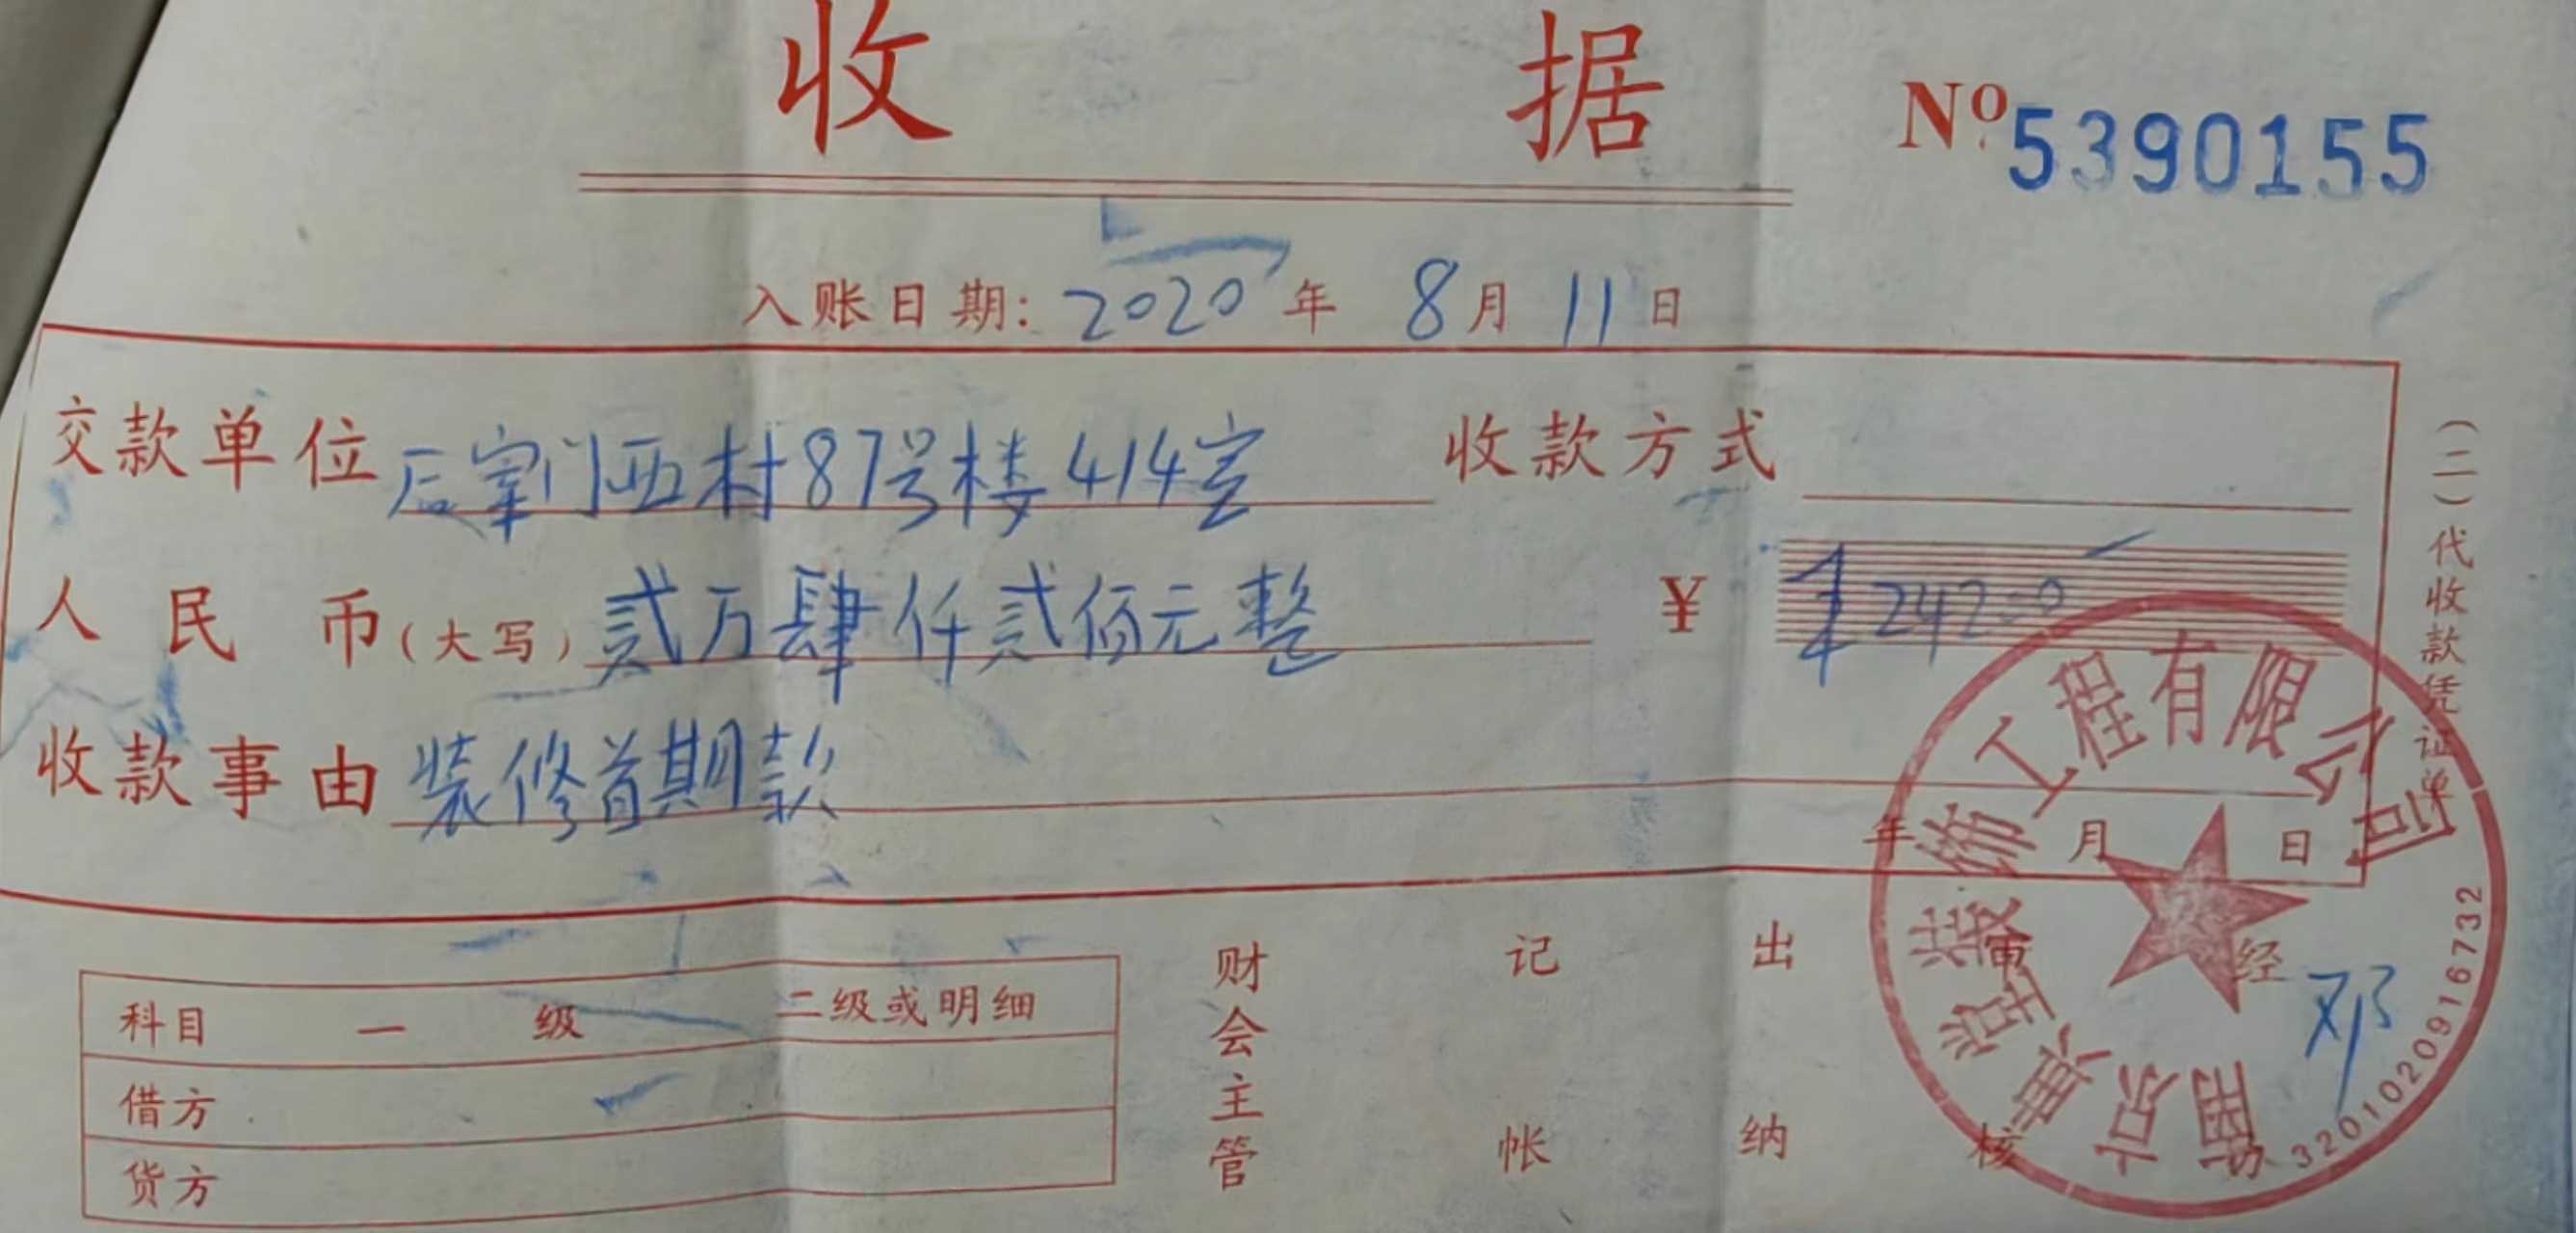 收 据
Nº 5390155
入账日期: 2020 年 8 月 11 日
交款单位 后宰门西村87号楼414室 收款方式
人民币(大写) 贰万肆仟贰佰元整 ¥ 24200
收款事由 装修首期款
年 月 日
(二)代收款凭证单
科目 一级 二级或明细
借方
货方
财会主管 记帐 出纳 审核 经 邓
装饰工程有限公司
南京
3201020916732